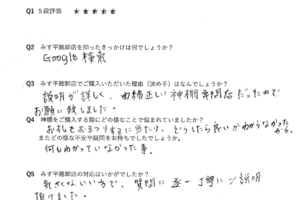 Q1 5段評価 ★★★★★
Q2 みす平総卸店を知ったきっかけは何でしょうか？
Google 検索
Q3 みす平総卸店でご購入いただいた理由（決め手）はなんでしょうか？
説明が詳しく、由緒正しい神棚専門店だったので
お願い致しました。
Q4 神棚をご購入する際にどの様なことで悩まれていましたか？
お札をおまつりするに当たり、どうしたら良いかわからなかったから。
またどの様な不安や疑問をお持ちでしたでしょうか？
何もわかっていなかった事。
Q5 みす平総卸店の対応はいかがでしたか？
気さくないい方で、質問に逐一丁寧にご説明
頂けました。